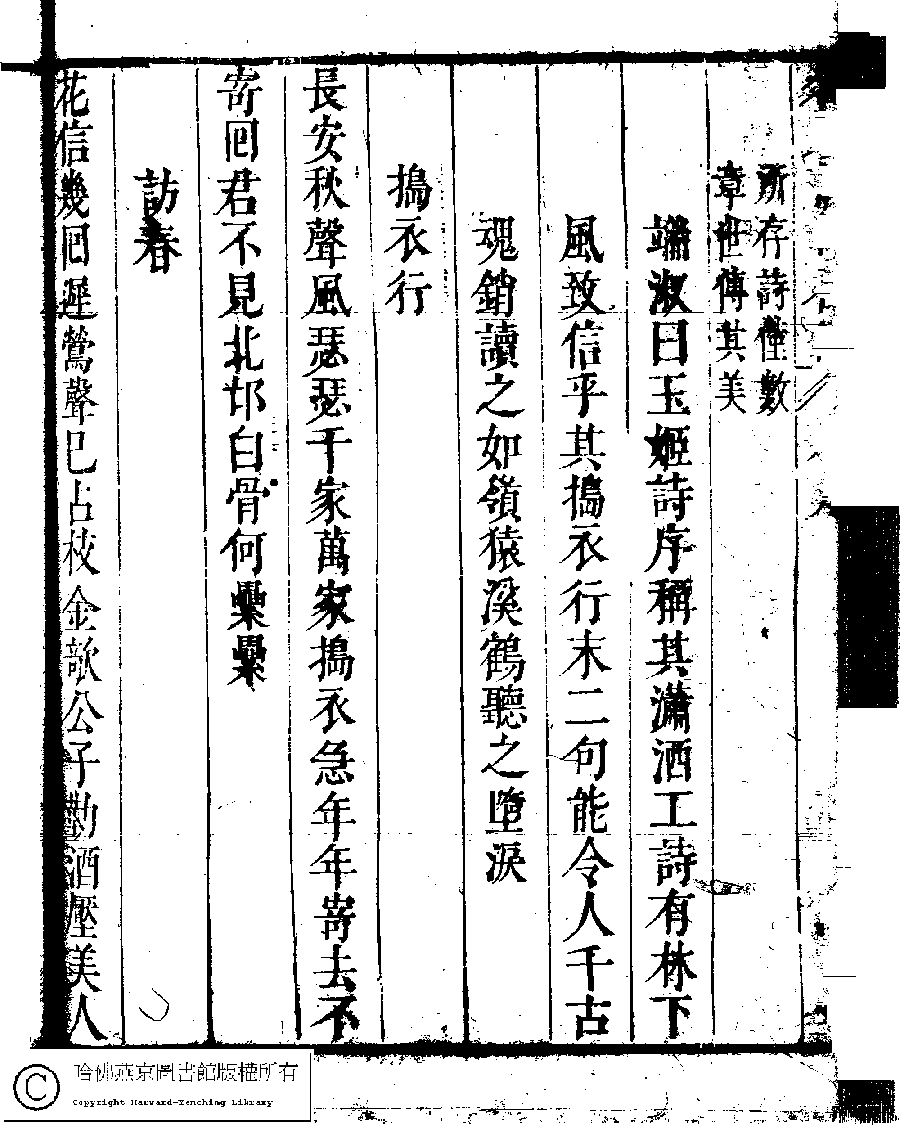 所存詩僅數
章世傳其美
端淑曰玉姬詩序稱其瀟洒工詩有林下
風致信乎其搗衣行末二句能令人千古
魂銷讀之如嶺猿溪鶴聽之墮淚
搗衣行
長安秋聲風瑟瑟千家萬家搗衣急年年寄去不
寄囘君不見北邙白骨何纍纍
訪春
花信幾囘遲鶯聲已占枝金歌公子勸酒壓美人
哈佛燕京圖書館版權所有
Copyright Harvard-Yenching Library